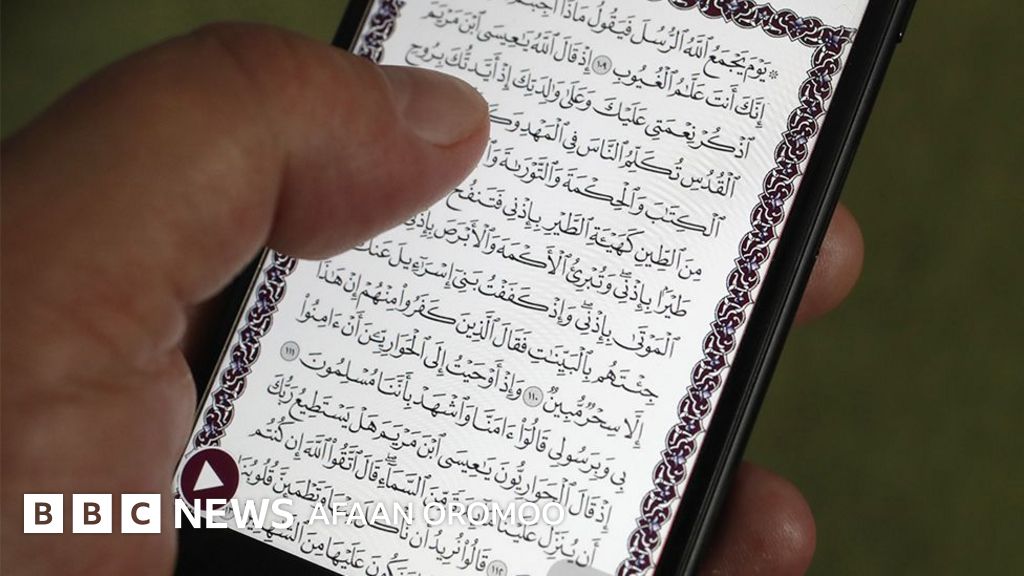 يَوْمَ يَجْمَعُ ٱللَّهُ ٱلرُّسُلَ فَيَقُولُ مَاذَآ أُجِبْتُمْ
إِنَّكَ أَنتَ عَلَّٰمُ ٱلْغُيُوبِ ١٠٩ إِذْ قَالَ ٱللَّهُ يَٰعِيسَى ٱبْنَ مَرْيَمَ
ٱذْكُرْ نِعْمَتِى عَلَيْكَ وَعَلَىٰ وَٰلِدَتِكَ إِذْ أَيَّدتُّكَ بِرُوحِ
ٱلْقُدُسِ تُكَلِّمُ ٱلنَّاسَ فِى ٱلْمَهْدِ
ٱلْكِتَٰبَ وَٱلْحِكْمَةَ وَٱلتَّوْرَىٰةَ
مِنَ ٱلطِّينِ كَهَيْـَٔةِ ٱلطَّيْرِ بِإِذْنِى فَتَنفُخُ
طَيْرًۢا بِإِذْنِى وَتُبْرِئُ ٱلْأَكْمَهَ وَٱلْأَبْرَصَ بِإِذْنِى
ٱلْمَوْتَىٰ بِإِذْنِى وَإِذْ كَفَفْتُ بَنِىٓ إِسْرَٰٓءِيلَ عَنكَ
جِئْتَهُم بِٱلْبَيِّنَٰتِ فَقَالَ ٱلَّذِينَ كَفَرُوا۟ مِنْهُمْ إِنْ هَٰذَآ
إِلَّا سِحْرٌ مُّبِينٌ ١١٠ وَإِذْ أَوْحَيْتُ إِلَى ٱلْحَوَارِيِّۦنَ أَنْ ءَامِنُوا۟
بِى وَبِرَسُولِى قَالُوٓا۟ ءَامَنَّا وَٱشْهَدْ بِأَنَّنَا مُسْلِمُونَ ١١١
إِذْ قَالَ ٱلْحَوَارِيُّونَ يَٰعِيسَى ٱبْنَ مَرْيَمَ هَلْ يَسْتَطِيعُ رَبُّكَ
أَن يُنَزِّلَ عَلَيْنَا مِّنَ ٱلسَّمَآءِ قَالَ ٱتَّقُوا۟ ٱللَّهَ إِن كُنتُم
١١٢ قَالُوا۟ نُرِيدُ أَن نَّأْكُلَ وَتَطْمَئِنَّ قُلُوبُنَا
عَلَيْهَا مِنَ
BBC NEWS AFAAN OROMOO